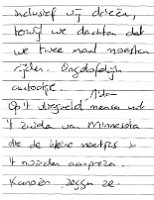 inclusief wij drieën,
terwijl we dachten dat
we twee maal moesten
rijden. Ongelofelijk
autootje.
Op 't mensen uit
't zuiden van Minnesota
die de kleine meertjes in
't noorden aanprezen.
Kanoën, zeggen ze.